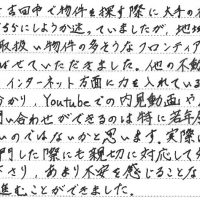 吉田中で物件を探す際に大手の
るかにしようか迷っていましたが、地域
取扱い物件の多そうなフロンティア
ばせていただきました。他の不動
インターネット方面に力を入れている
分かり、Youtubeでの内見動画や
問い合わせができるのは特に若年層
いのではないかと思います。実際
問した際にも親切に対応して
さり、あまり不安を感じることな
進むことができました。